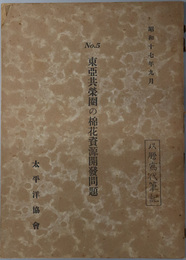 昭和十七年九月
No.5
東亞共榮圏の棉花資源開發問題
太平洋協會